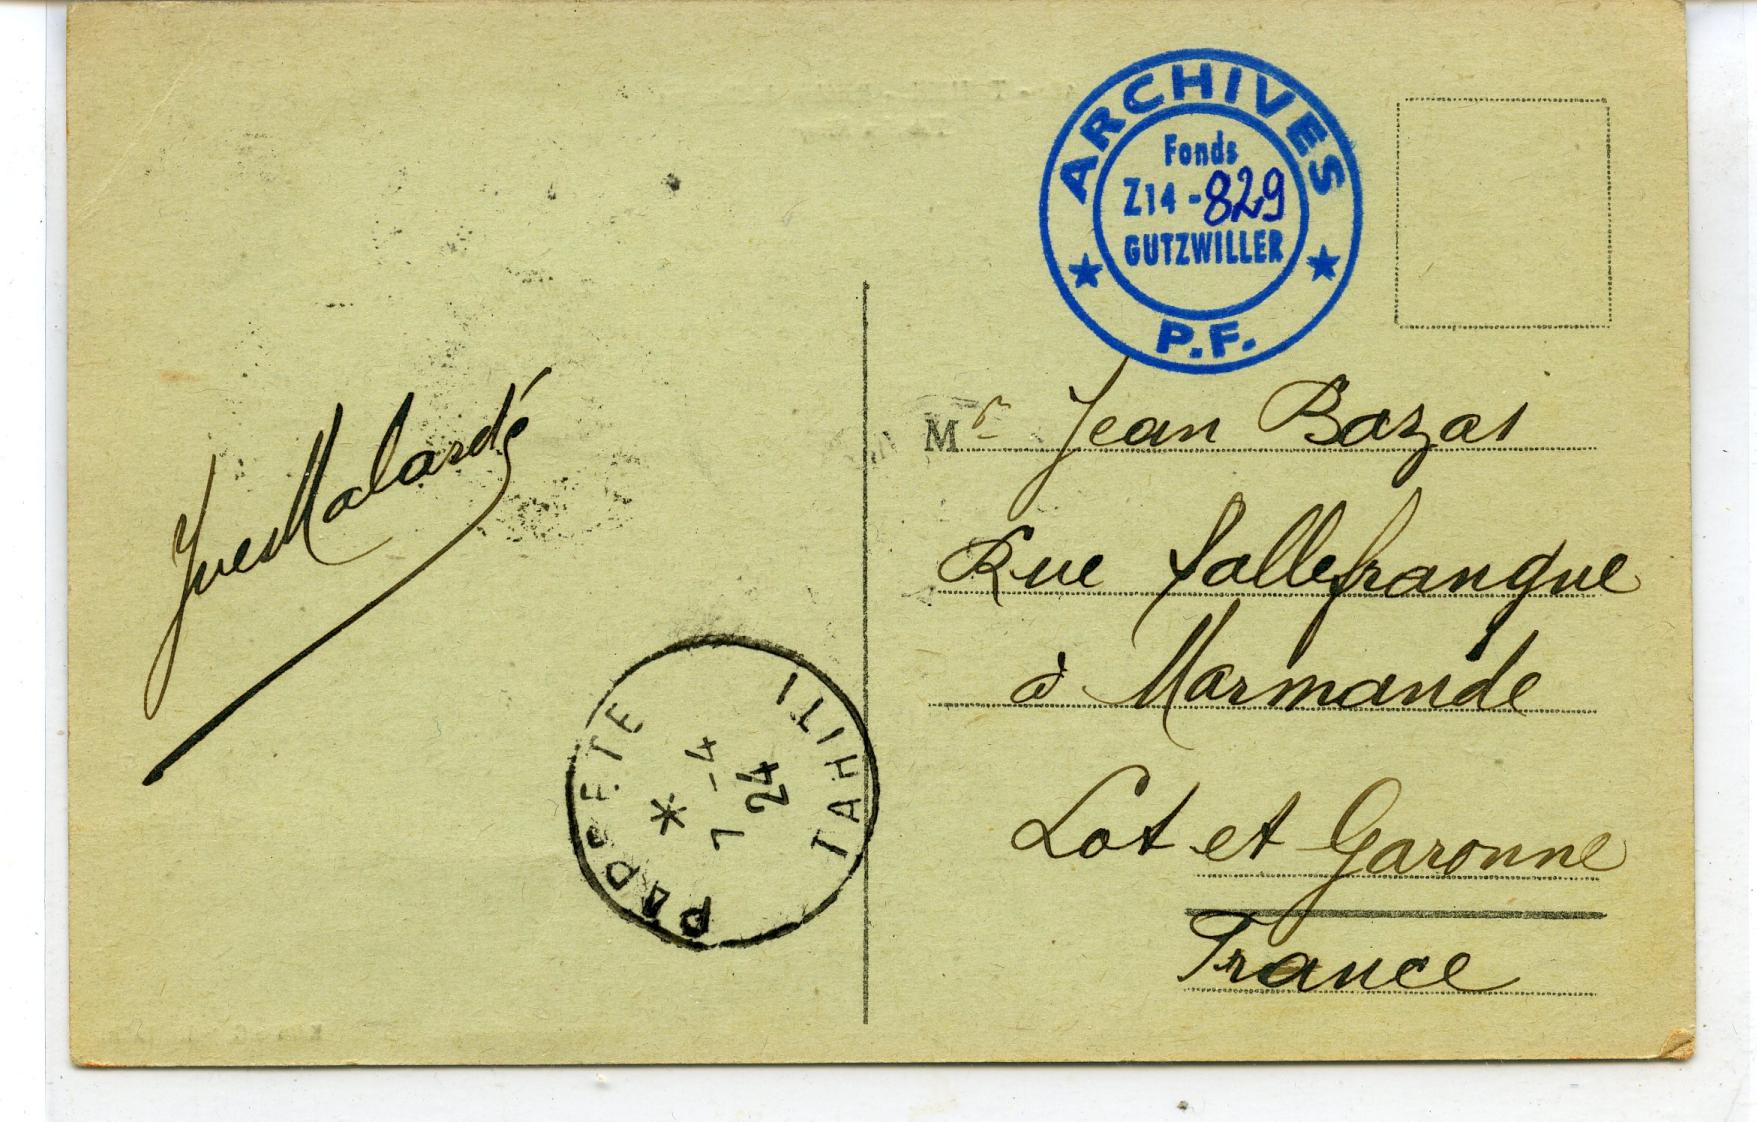 ARCHIVES
Fonds
Z14-829
GUTZWILLER
P.F.
Yves Malardé
Mr Jean Bazas
Rue Sallefranque
à Marmande
Lot et Garonne
France
PAPEETE
* 7-4
24
TAHITI